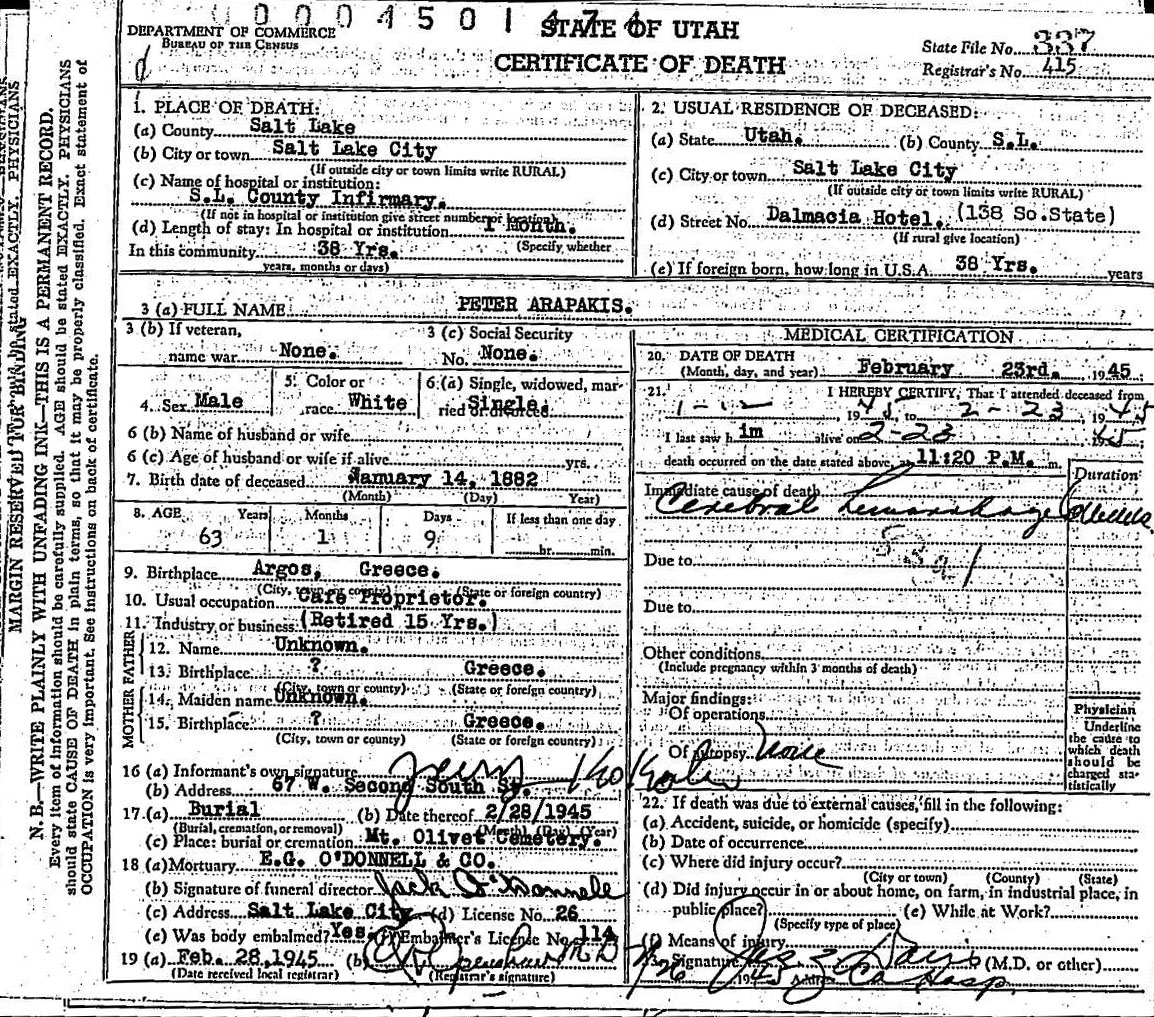 DEPARTMENT OF COMMERCE
BUREAU OF THE CENSUS
STATE OF UTAH
CERTIFICATE OF DEATH
State File No. 337
Registrar's No. 415
MARGIN RESERVED FOR BINDING
N. B.—WRITE PLAINLY WITH UNFADING INK—THIS IS A PERMANENT RECORD.
Every item of information should be carefully supplied. AGE should be stated EXACTLY. PHYSICIANS
should state CAUSE OF DEATH in plain terms, so that it may be properly classified. Exact statement of
OCCUPATION is very important. See instructions on back of certificate.
1. PLACE OF DEATH:
(a) County Salt Lake
(b) City or town Salt Lake City
(If outside city or town limits write RURAL)
(c) Name of hospital or institution:
S.L. County Infirmary.
(If not in hospital or institution give street number or location)
(d) Length of stay: In hospital or institution 1 Month.
(Specify whether
In this community 38 Yrs.
years, months or days)
2. USUAL RESIDENCE OF DECEASED:
(a) State Utah. (b) County S.L.
(c) City or town Salt Lake City
(If outside city or town limits write RURAL)
(d) Street No. Dalmacia Hotel. (138 So.State)
(If rural give location)
(e) If foreign born, how long in U.S.A. 38 Yrs. years
3 (a) FULL NAME PETER ARAPAKIS.
3 (b) If veteran,
name war None.
3 (c) Social Security
No. None.
4. Sex Male
5. Color or
race White
6. (a) Single, widowed, mar-
ried or divorced Single
6 (b) Name of husband or wife
6 (c) Age of husband or wife if alive yrs.
7. Birth date of deceased January 14, 1882
(Month) (Day) Year)
8. AGE Years Months Days If less than one day
63 1 9 hr. min.
9. Birthplace Argos, Greece.
(City, town or county) (State or foreign country)
10. Usual occupation Cafe Proprietor.
11. Industry or business (Retired 15 Yrs.)
FATHER
12. Name Unknown.
13. Birthplace ? Greece.
(City, town or county) (State or foreign country)
MOTHER
14. Maiden name Unknown.
15. Birthplace ? Greece.
(City, town or county) (State or foreign country)
16 (a) Informant's own signature
(b) Address 67 W. Second South St.
17. (a) Burial (b) Date thereof 2/28/1945
(Burial, cremation, or removal) (Month) (Day) (Year)
(c) Place: burial or cremation Mt. Olivet Cemetery.
18 (a) Mortuary E.G. O'DONNELL & CO.
(b) Signature of funeral director Jack O'Donnell
(c) Address Salt Lake City (d) License No. 26
(e) Was body embalmed? Yes. (f) Embalmer's License No. 114
19 (a) Feb. 28, 1945 (b) M D
(Date received local registrar) (Registrar's signature)
MEDICAL CERTIFICATION
20. DATE OF DEATH
(Month, day, and year) February 23rd. 1945
21. I HEREBY CERTIFY, That I attended deceased from
1-12 1945, to 2-23 1945
I last saw him alive on 2-23 1945
death occurred on the date stated above, at 11:20 P.M. m.
Duration
Immediate cause of death
Cerebral hemorrhage
Due to
Due to
Other conditions
(Include pregnancy within 3 months of death)
Major findings:
Of operations
Of autopsy None
Physician
Underline
the cause to
which death
should be
charged sta-
tistically
22. If death was due to external causes, fill in the following:
(a) Accident, suicide, or homicide (specify)
(b) Date of occurrence
(c) Where did injury occur?
(City or town) (County) (State)
(d) Did injury occur in or about home, on farm, in industrial place, in
public place? (e) While at Work?
(Specify type of place)
(f) Means of injury
23. Signature Davis (M.D. or other)
2/26 1945 Address Co Hosp.